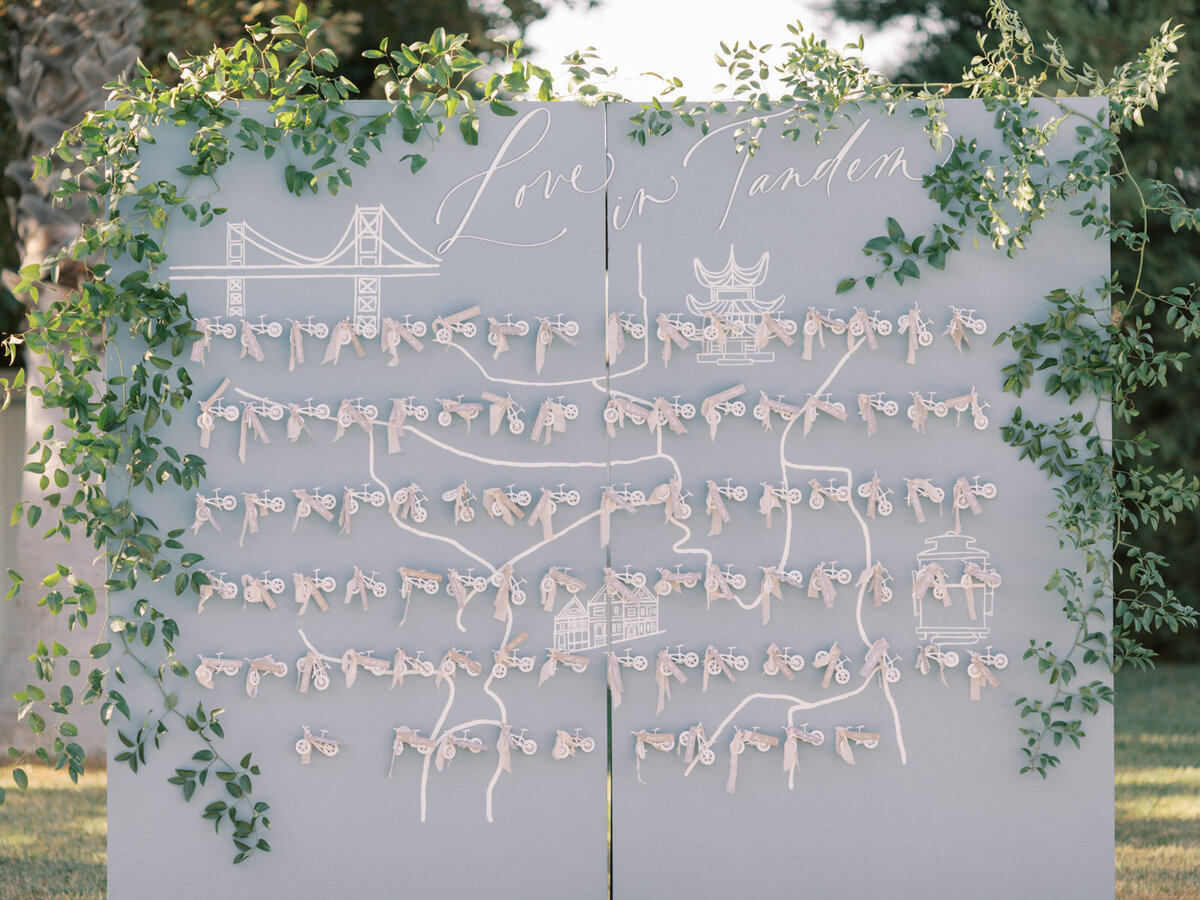 Love in Tandem